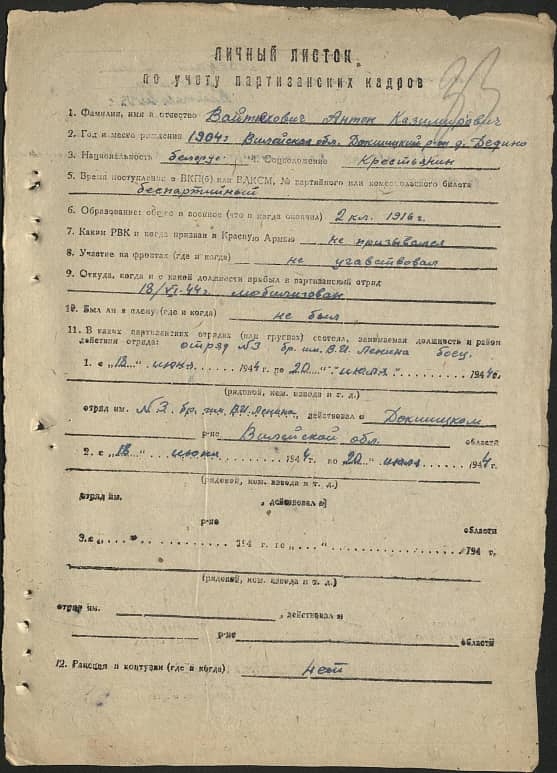 33
ЛИЧНЫЙ ЛИСТОК
по учету партизанских кадров
1. Фамилия, имя и отчество Войтехович Антон Казимирович
2. Год и место рождения 1904г Вилейская обл. Докшицкий р-он д. Дедино
3. Национальность белорус 4. Соцположение Крестьянин
5. Время поступления в ВКП(б) или ВЛКСМ, № партийного или комсомольского билета
беспартийный
6. Образование: общее и военное (что и когда окончил) 2 кл. 1916 г.
7. Каким РВК и когда призван в Красную Армию не призывался
8. Участие на фронтах (где и когда) не учавствовал
9. Откуда, когда и с какой должности прибыл в партизанский отряд
18/VI-44г. мобилизован
10. Был ли в плену (где и когда) не был
11. В каких партизанских отрядах (или группах) состоял, занимаемая должность и район
действия отряда: отряд №3 бр. им. В.И. Ленина боец.
1. с „18...“ июня....... 1944 г. по 20....“ „июля“......... 1944г.
(рядовой, ком. взвода и т. д.)
отряд им. №3. бр. им. В.И. Ленина, действовал в Докшицком
р-не Вилейской обл. области
2. с „18...“ июня....... 1944 г. по „20...“ июля....... 1944 г.
(рядовой, ком. взвода и т. д.)
отряд им. , действовал в
р-не области
3. с „...... 194 г. по „....“ ........ 194 г.
(рядовой, ком. взвода и т. д.)
отряд им. , действовал в
р-не области
12. Ранения и контузии (где и когда) нет